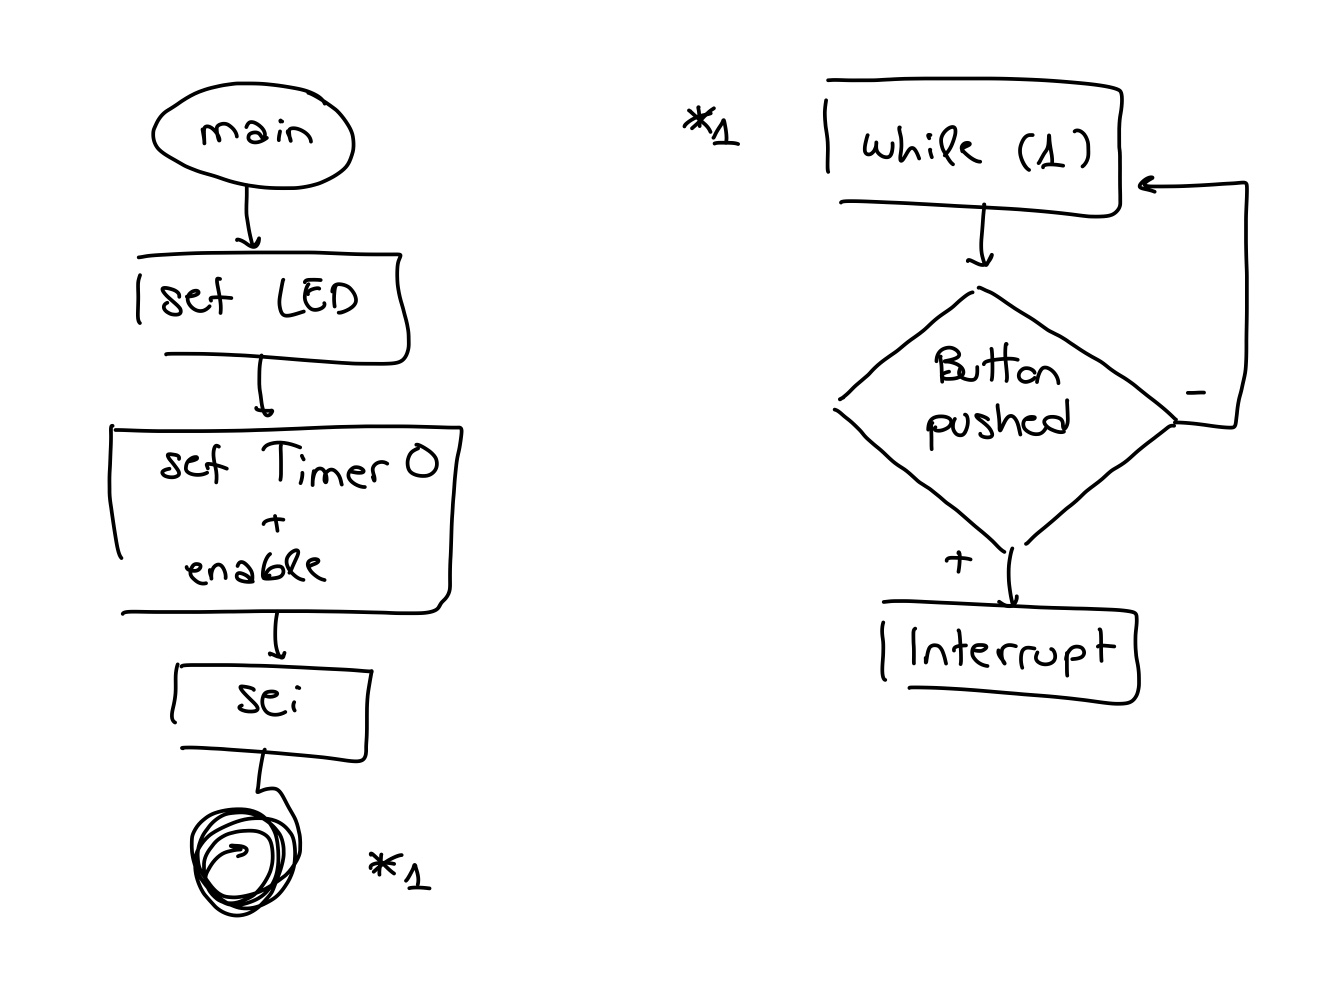 main
set LED
set Timer 0
+
enable
sei
*1
*1
while (1)
Button
pushed
-
+
Interrupt